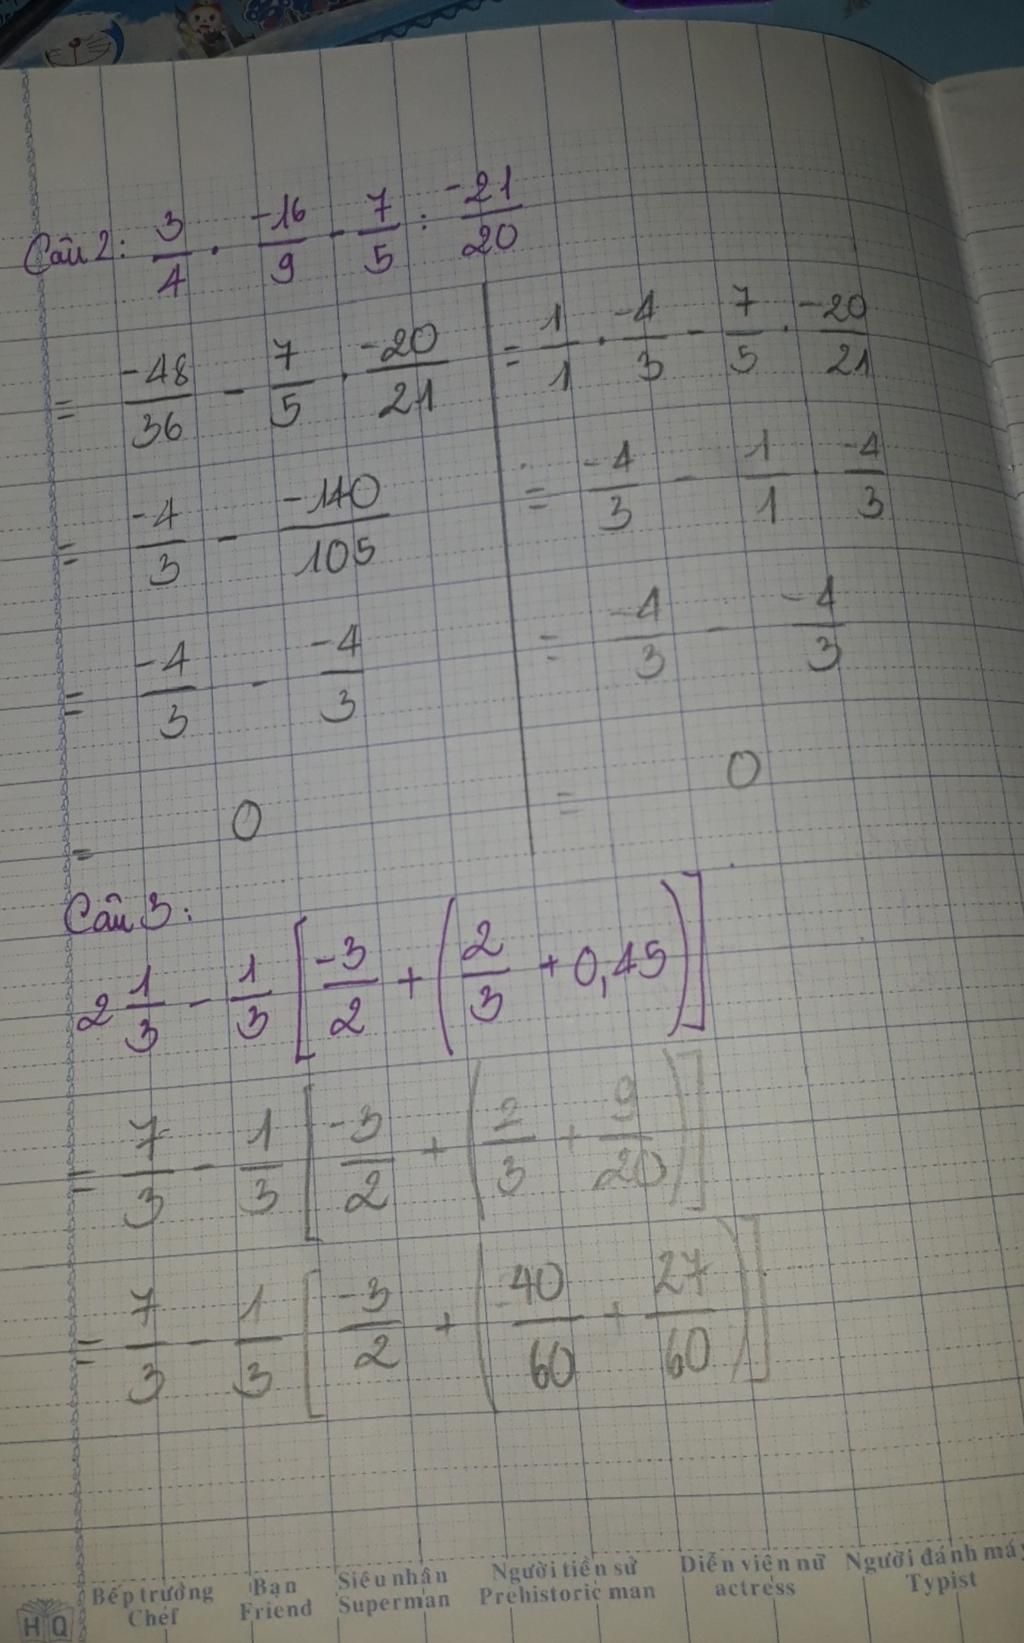 Câu 2: 3/4 . -16/9 - 7/5 : -21/20
= -48/36 - 7/5 . -20/21
= -4/3 - -140/105
= -4/3 - -4/3
= 0
= 1/1 . -4/3 - 7/5 . -20/21
= -4/3 - 1/1 . -4/3
= -4/3 - -4/3
= 0
Câu 3:
2 1/3 - 1/3 [ -3/2 + ( 2/3 + 0,45 ) ]
= 7/3 - 1/3 [ -3/2 + ( 2/3 + 9/20 ) ]
= 7/3 - 1/3 [ -3/2 + ( 40/60 + 27/60 ) ]
HQ
Bếp trưởng
Chef
Bạn
Friend
Siêu nhân
Superman
Người tiền sử
Prehistoric man
Diễn viên nữ
actress
Người đánh máy
Typist